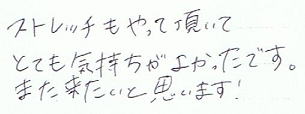 ストレッチもやって頂いて
とても気持ちがよかったです。
また来たいと思います!